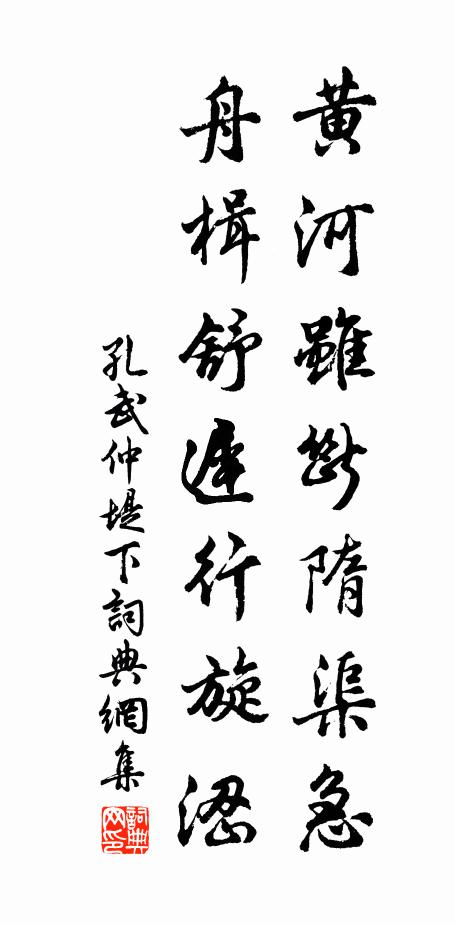 黄河雖斷隋渠急
舟楫舒遲行旋澀
孔武仲堤下詞典網集
詞典
网印